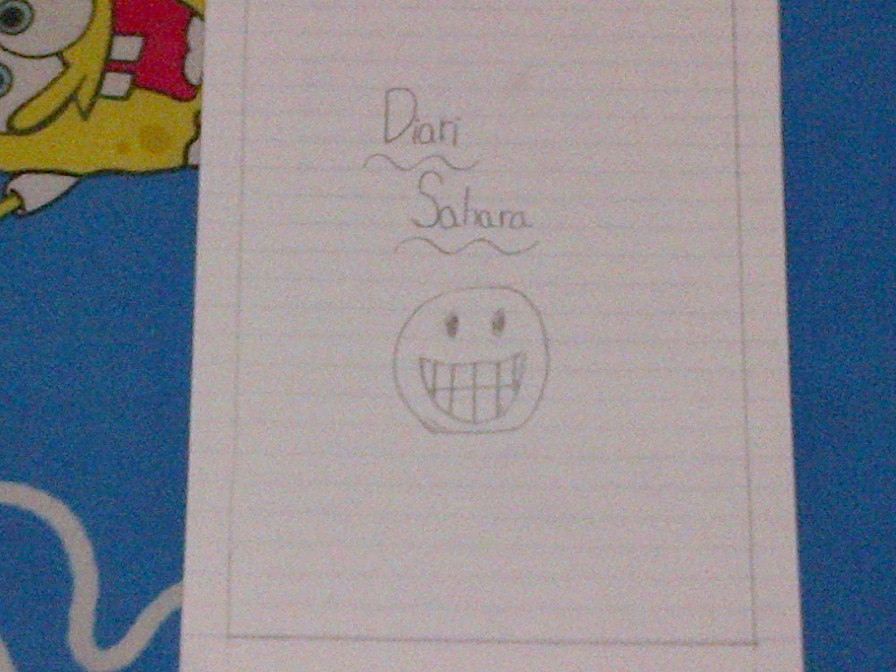 Diari
Sahara